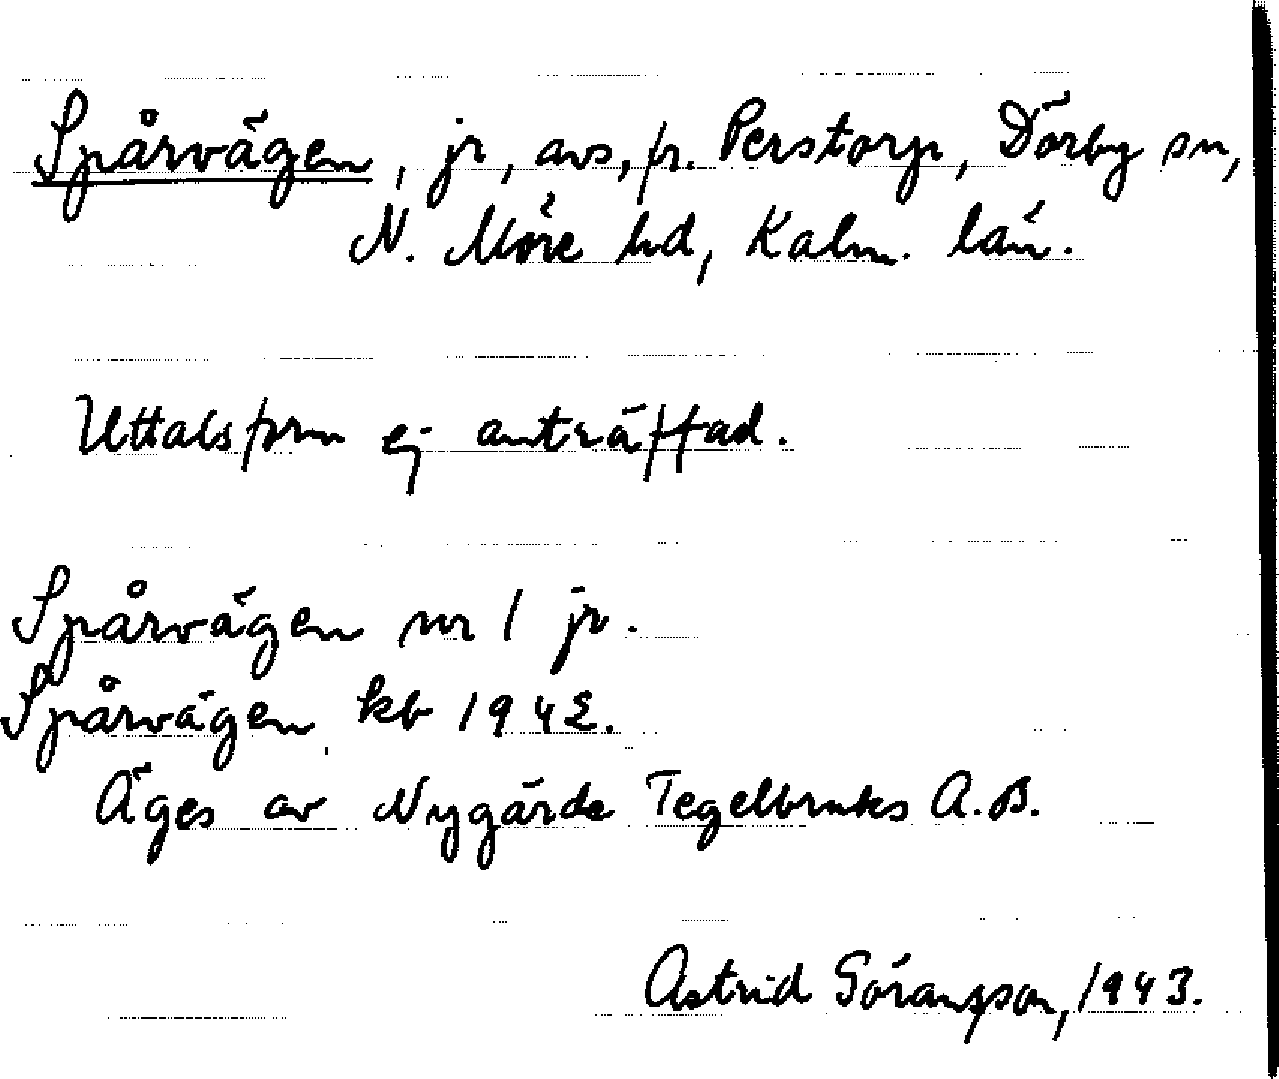 Spårvägen, jr, avs. fr. Perstorp, Dörby sn,
N. Möre hd, Kalm. län.
Uttalsform ej anträffad.
Spårvägen nr 1 jr.
Spårvägen kb 1942.
Äges av Nygärde Tegelbruks A.B.
Astrid Göransson, 1943.